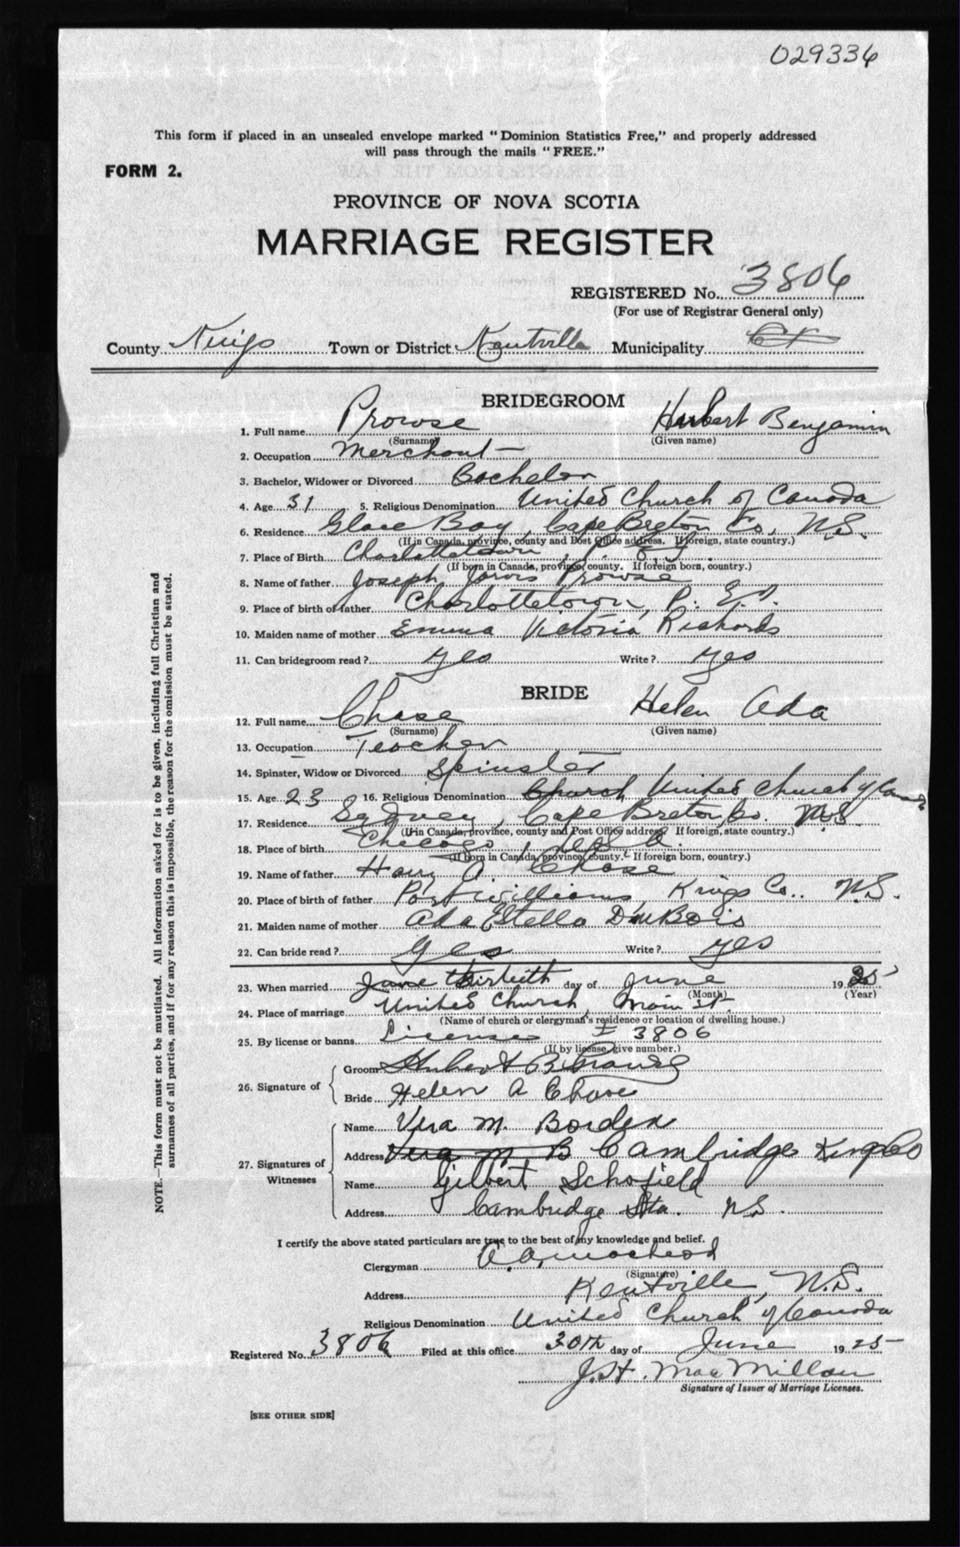 029336
This form if placed in an unsealed envelope marked "Dominion Statistics Free," and properly addressed
will pass through the mails "FREE."
FORM 2.
PROVINCE OF NOVA SCOTIA
MARRIAGE REGISTER
REGISTERED No. 3806
(For use of Registrar General only)
County Kings Town or District Kentville Municipality
BRIDEGROOM
1. Full name Prowse Herbert Benjamin
(Surname) (Given name)
2. Occupation Merchant
3. Bachelor, Widower or Divorced Bachelor
4. Age 31 5. Religious Denomination United Church of Canada
6. Residence Glace Bay, Cape Breton Co, N.S.
(If in Canada, province, county and Post Office address. If foreign, state country.)
7. Place of Birth Charlottetown, P. E I
(If born in Canada, province, county. If foreign born, country.)
8. Name of father Joseph Jarvis Prowse
9. Place of birth of father Charlottetown, P. E I.
10. Maiden name of mother Emma Victoria Richards
11. Can bridegroom read? yes Write? yes
BRIDE
12. Full name Chase Helen Ada
(Surname) (Given name)
13. Occupation Teacher
14. Spinster, Widow or Divorced Spinster
15. Age 23 16. Religious Denomination Church United Church of Canada
17. Residence Sydney, Cape Breton Co. N.S
(If in Canada, province, county and Post Office address. If foreign, state country.)
18. Place of birth Chicago, U.S.A.
(If born in Canada, province, county. If foreign born, country.)
19. Name of father Harry A. Chase
20. Place of birth of father Port Williams Kings Co.. N.S.
21. Maiden name of mother Ada Estella DuBois
22. Can bride read? yes Write? yes
23. When married June thirtieth day of June 1925
(Month) (Year)
24. Place of marriage United Church, Main St.
(Name of church or clergyman's residence or location of dwelling house.)
25. By license or banns License # 3806
(If by license, give number.)
26. Signature of Groom Herbert B Prowse
Bride Helen A Chase
27. Signatures of Witnesses Name Vera M. Borden
Address Vera M. B Cambridge Kings Co
Name Gilbert Schofield
Address Cambridge Sta. N.S.
I certify the above stated particulars are true to the best of my knowledge and belief.
Clergyman
(Signature)
Address Kentville, N.S.
Religious Denomination United Church of Canada
Registered No. 3806 Filed at this office 30th day of June 1925
J.H. MacMillan
Signature of Issuer of Marriage Licenses.
[SEE OTHER SIDE]
NOTE.—This form must not be mutilated. All information asked for is to be given, including full Christian and
surnames of all parties, and if for any reason this is impossible, the reason for the omission must be stated.